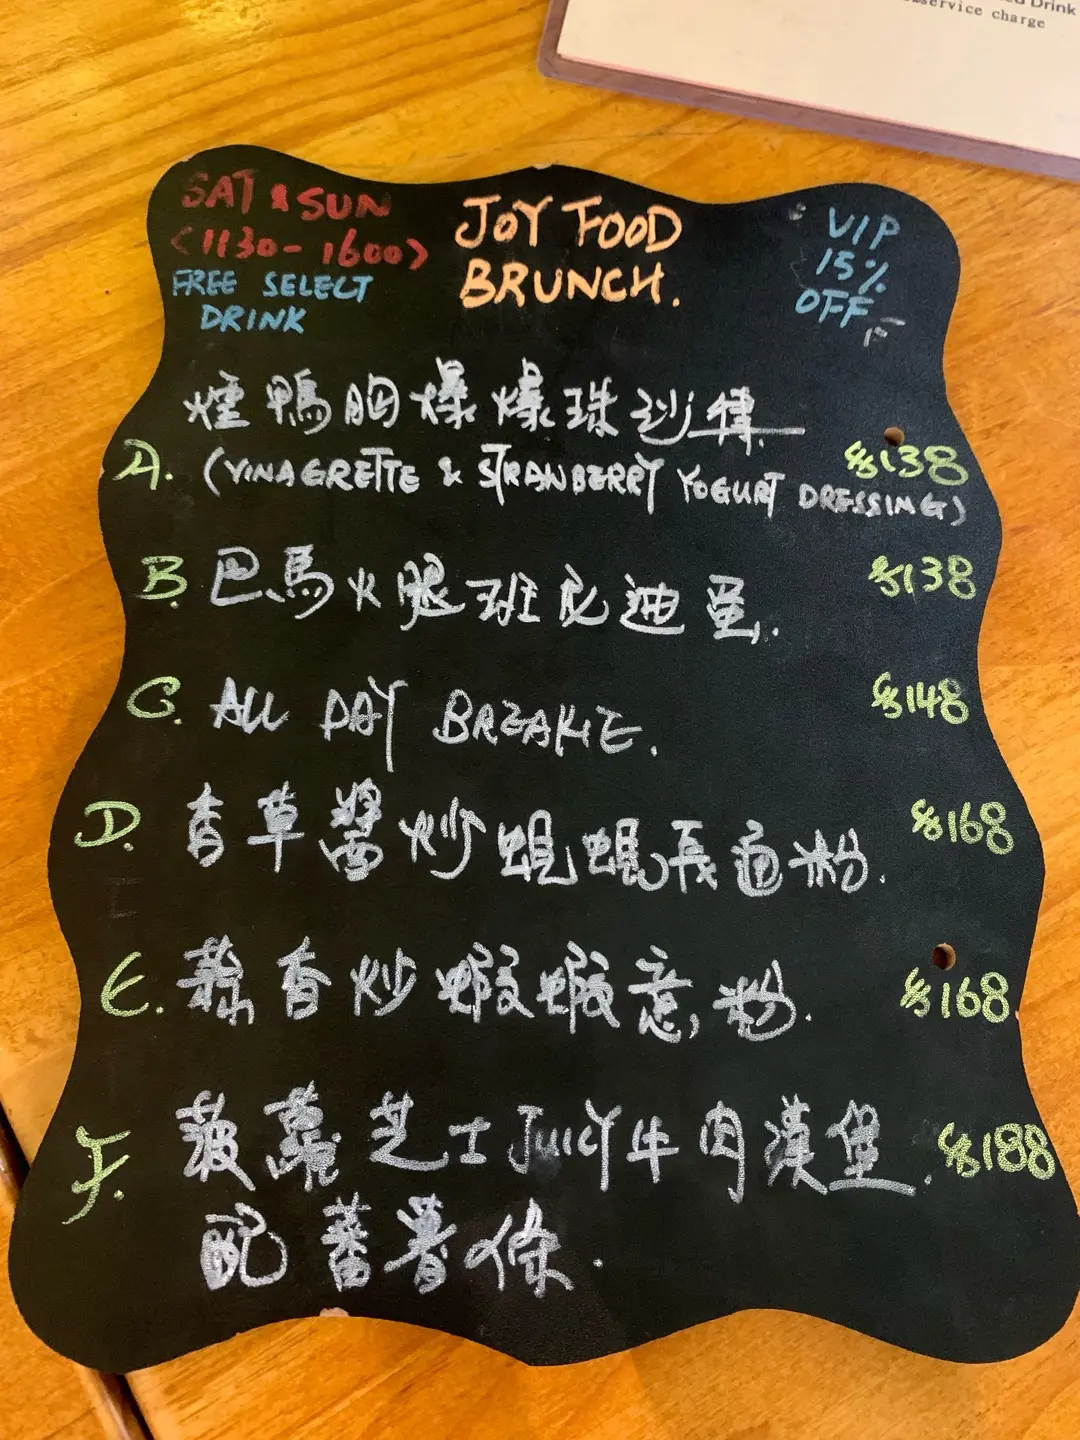 Drink
service charge
SAT & SUN
<1130-1600>
FREE SELECT
DRINK
JOY FOOD
BRUNCH.
VIP
15%
OFF
煙鴨胸爆爆珠沙律
A. (VINAGRETTE & STRANBERRY YOGURT DRESSING) $138
B. 巴馬火腿班尼迪蛋. $138
C. ALL DAY BREAKIE. $148
D. 香草醬炒蜆蜆長通粉. $168
E. 蒜香炒蝦蝦意粉. $168
F. 菠蘿芝士JUICY牛肉漢堡. $188
配蕃薯條.